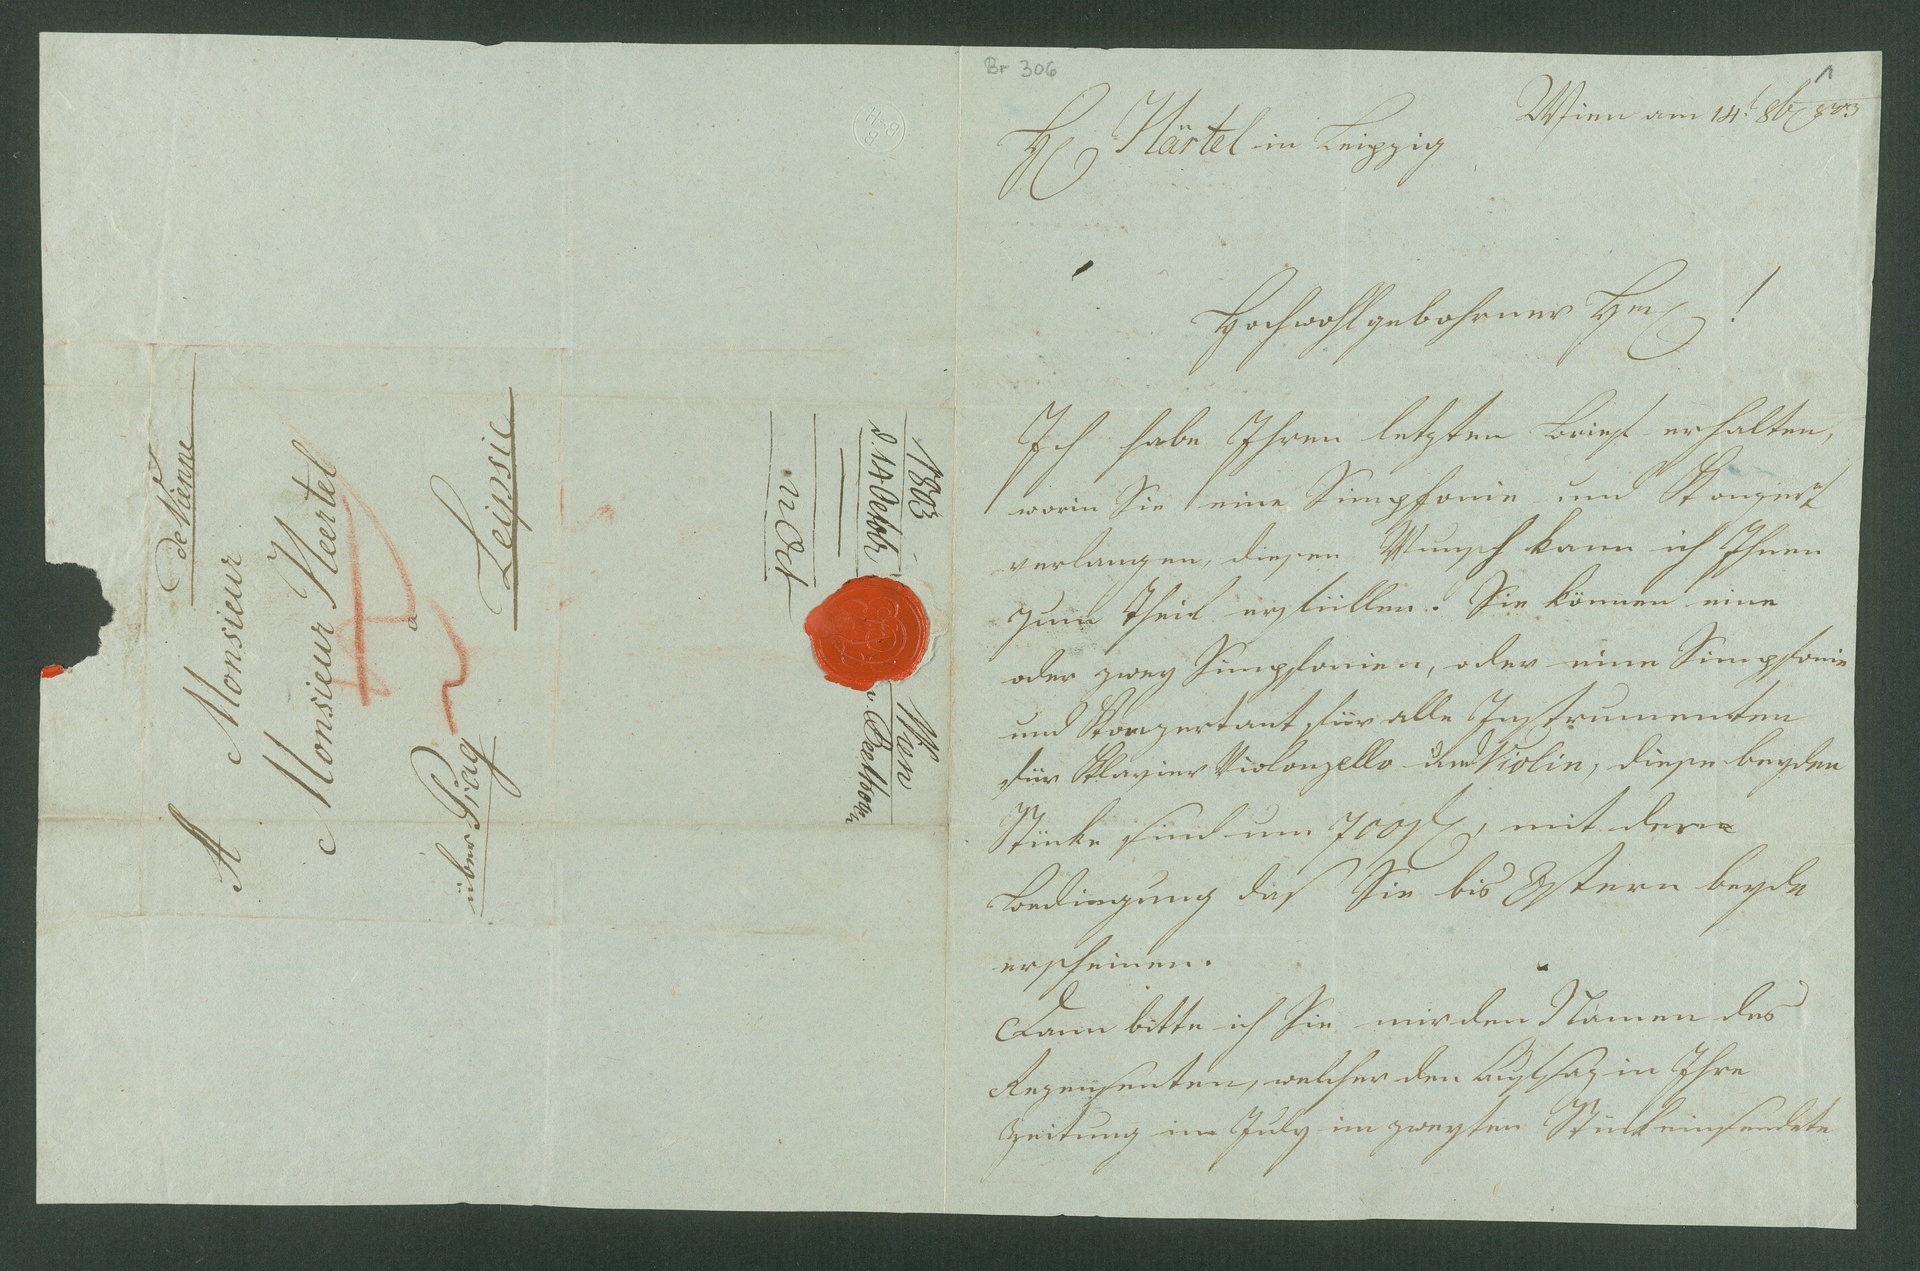 Br 306
1
Wien am 14t 8b 803
H Härtel in Leipzig
Hochwohlgebohrner Herr!
Ich habe Ihren letzten Brief erhalten,
worin Sie eine Simpfonie und Konzert
verlangen, diesen Wunsch kann ich Ihnen
zum Theil erfüllen. Sie können eine
oder zwey Simpfonien, oder eine Simpfonie
und Konzertant für alle Instrumenten
für Klavier Violonzello und Violin, diese beyden
Stücke sind um 700 f, mit der
Bedingung daß Sie bis Ostern beyde
erscheinen.
Dann bitte ich Sie mir den Namen des
Rezensenten, welcher den Aufsaz in Ihre
Zeitung im July im zweyten Stück einsendete
de Vienne
A Monsieur
Monsieur Heertel
a
Leipsic
über Prag
1803
d. 14 Octobr
Wien
v. Beethoven
B&H